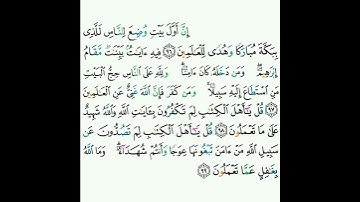 إِنَّ أَوَّلَ بَيْتٍ وُضِعَ لِلنَّاسِ لَلَّذِى
بِبَكَّةَ مُبَارَكًا وَهُدًى لِّلْعَٰلَمِينَ ٩٦ فِيهِ ءَايَٰتٌۢ بَيِّنَٰتٌ مَّقَامُ
إِبْرَٰهِيمَ ۖ وَمَن دَخَلَهُۥ كَانَ ءَامِنًا ۗ وَلِلَّهِ عَلَى النَّاسِ حِجُّ الْبَيْتِ
مَنِ اسْتَطَاعَ إِلَيْهِ سَبِيلًا ۚ وَمَن كَفَرَ فَإِنَّ اللَّهَ غَنِىٌّ عَنِ الْعَٰلَمِينَ
٩٧ قُلْ يَٰٓأَهْلَ الْكِتَٰبِ لِمَ تَكْفُرُونَ بِـَٔايَٰتِ اللَّهِ وَاللَّهُ شَهِيدٌ
عَلَىٰ مَا تَعْمَلُونَ ٩٨ قُلْ يَٰٓأَهْلَ الْكِتَٰبِ لِمَ تَصُدُّونَ عَن
سَبِيلِ اللَّهِ مَنْ ءَامَنَ تَبْغُونَهَا عِوَجًا وَأَنتُمْ شُهَدَآءُ ۗ وَمَا اللَّهُ
بِغَٰفِلٍ عَمَّا تَعْمَلُونَ ٩٩